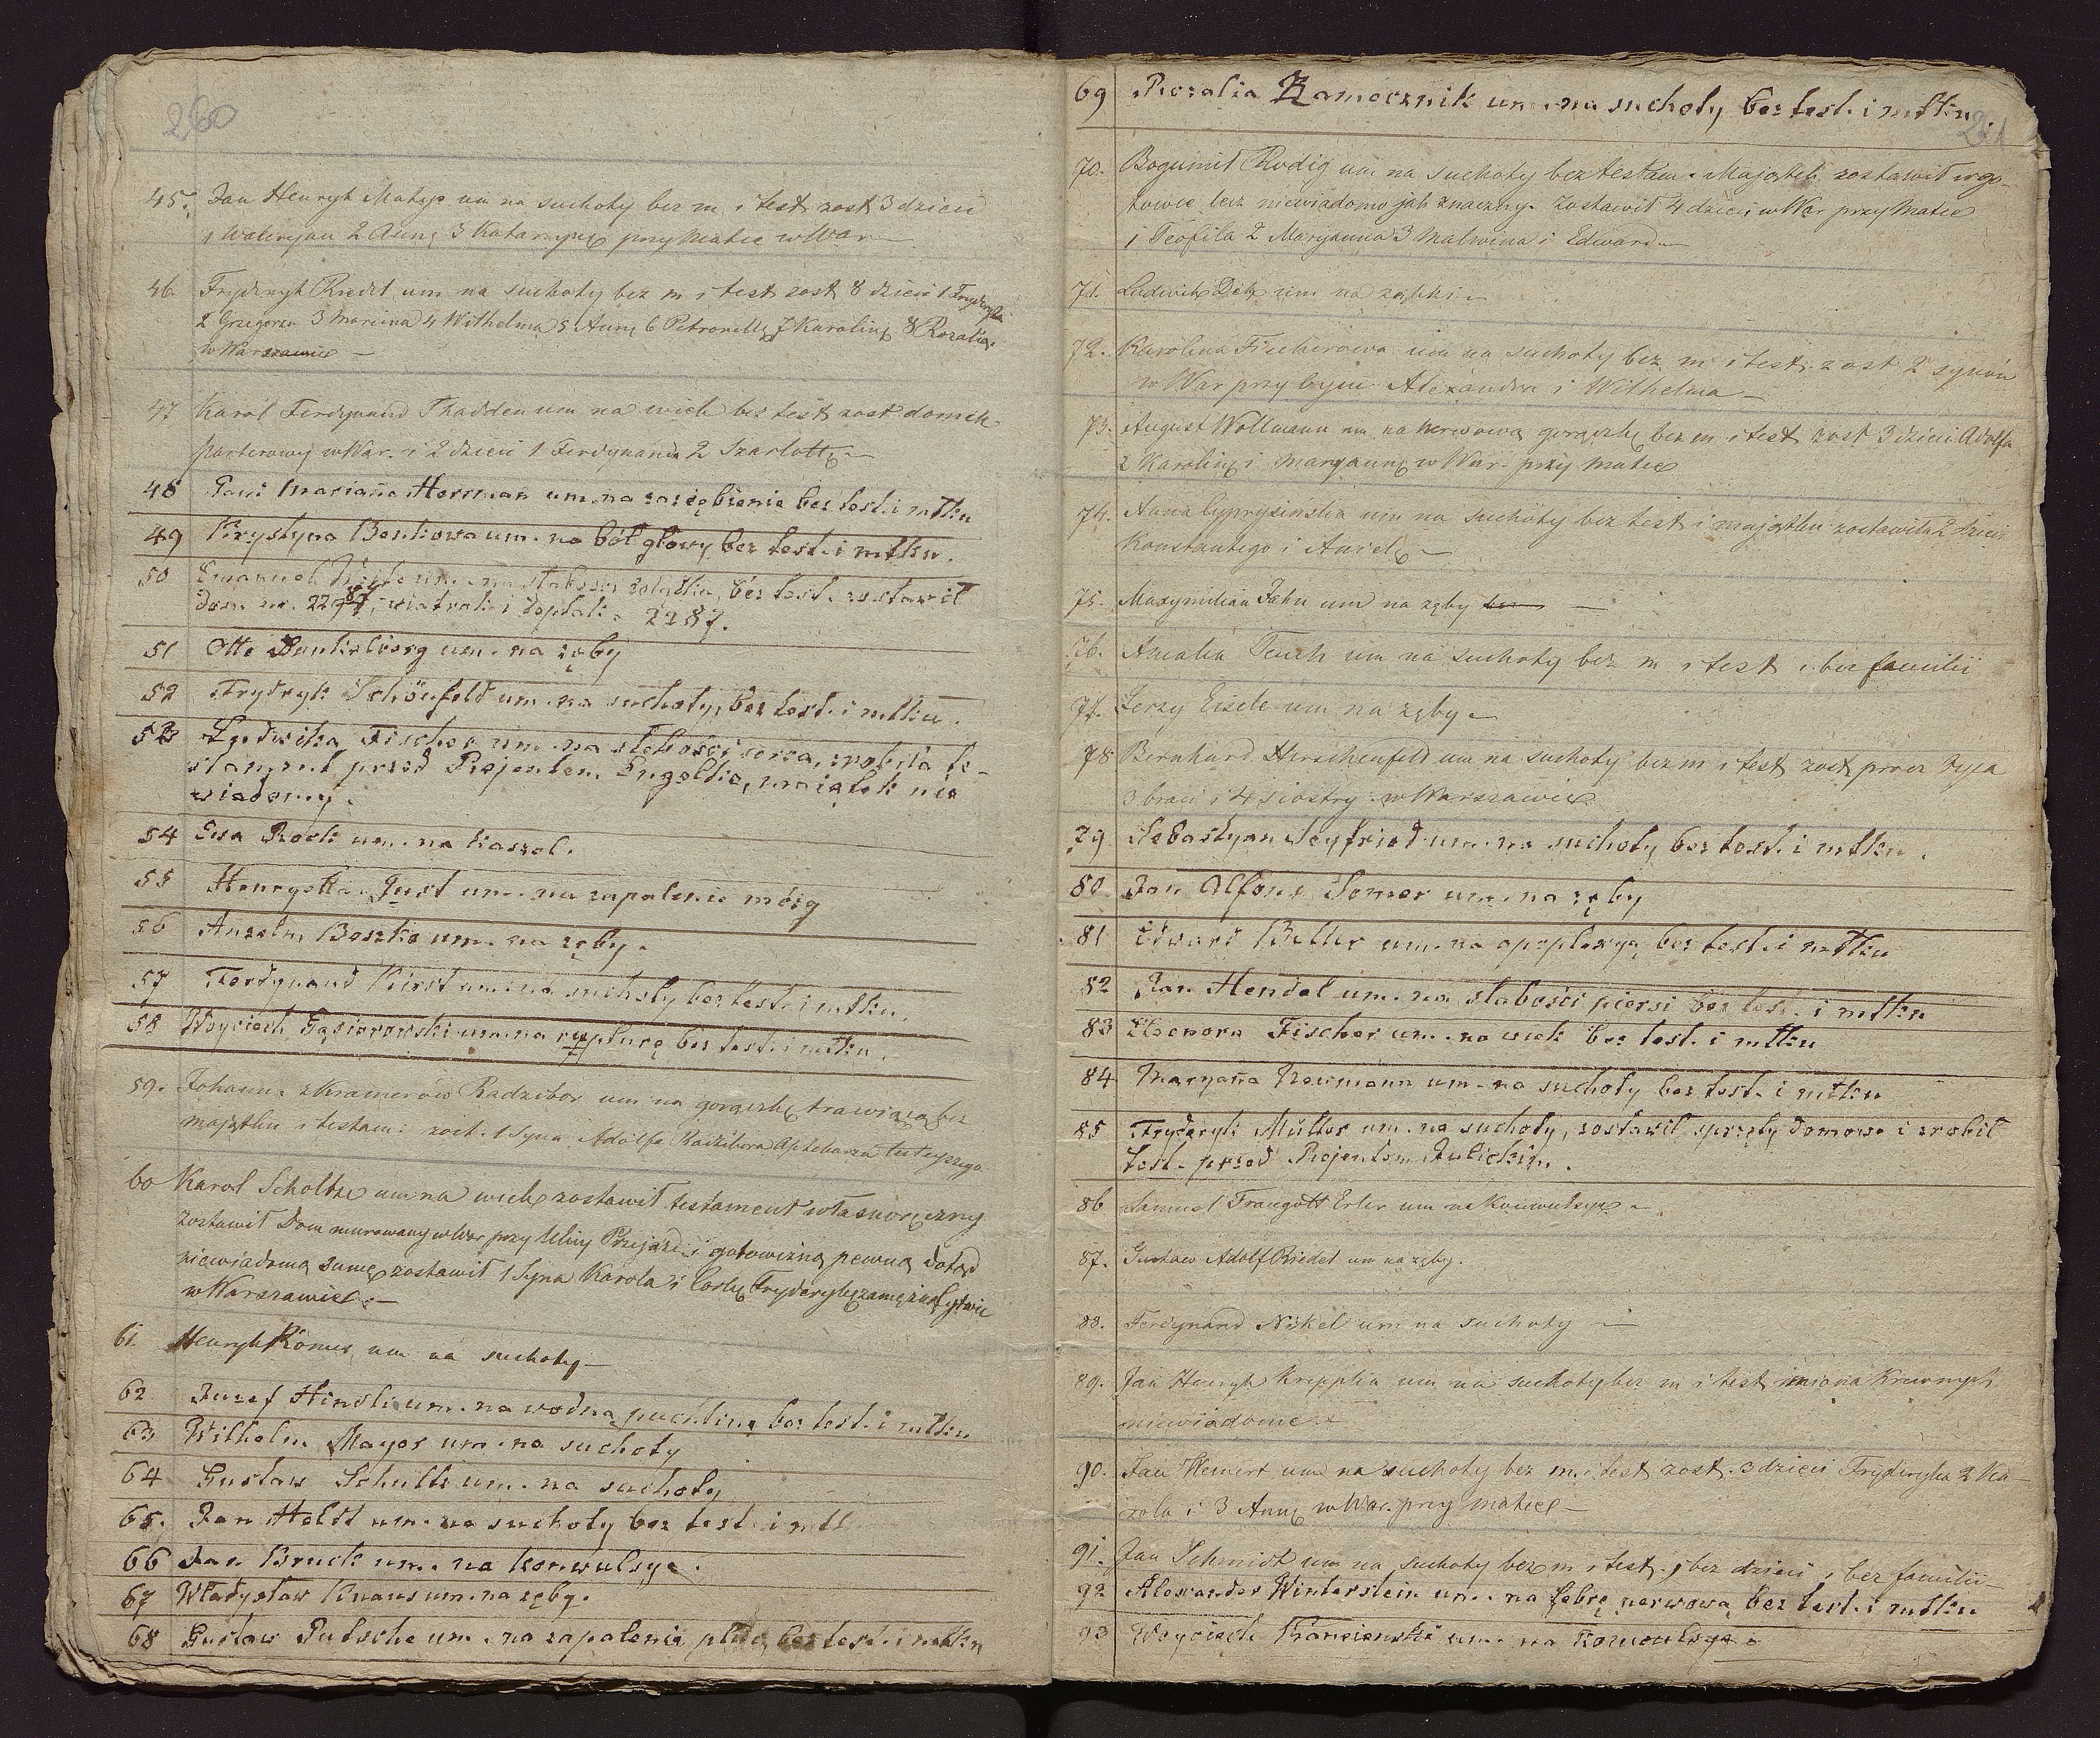 260
45. Jan Henryk Matys um na suchoty bez m i test zost 3 dzieci
1 Waleryan 2 Annę 3 Katarzynę przy Matce w War
46. Fryderyk Riedel um na suchoty bez m i test zost 8 dzieci 1 Fryderyka
2 Grzegorza 3 Marcina 4 Wilhelma 5 Annę 6 Petronellę 7 Karolinę 8 Rozalia
w Warszawie
47 Karol Ferdynand Thadden um na wiek bez test zost domek
parterowy w War. i 2 dzieci 1 Ferdynanda 2 Szarlottę
48 Pani Marianna Herman um. na zaziębienie bez test. i mtku
49 Krystyna um. na ból głowy, bez test. i mtku.
50 Emanuel um. na słabość żołądka, bez test. zostawił
dom nr. 2287, wiatrak i deptak. 2287.
51 Otto um. na zęby
52 Frydryk Schönfeld um. na suchoty, bez test. i mtku.
53 Ludwika Fischer um. na słabości serca, zrobiła te-
stament przed Rejentem Engelke, majątek nie
wiadomy.
54 Ewa Rock um. na kaszel.
55 Henryetta Just um. na zapalenie mózg
56 Anzelm Beszke um. na zęby.
57 Ferdynand Kirst um. na suchoty bez test. i mtku.
58 Woyciech Gąsiorowski um. na rupturę bez test. i mtku.
59. Johanna z Kramerów Radzibor um na gorączkę trawiącą bez
majątku i testam: zost. 1 Syna Adolfa Radzibora Aptekarza tutejszego
60 Karol Scholtze um na wiek zostawił testament własnoręczny
zostawił Dom murowany w War przy Ulicy Przejazd i gotowizną pewną dotąd
niewiadomą sumę zostawił 1 Syna Karola i Corkę Fryderykę zamężną
w Warszawie.
61. Henryk Römer um na suchoty
62 Juzef um. na wodną puchlinę bez test. i mtku
63 Wilhelm Mayer um. na suchoty
64 Gustaw Schultz um. na suchoty
65. Jan Heldt um. na suchoty bez test i mtk
66 Jan Bruck um. na konwulsye.
67 Władysław Knaus um. na zęby.
68 Gustaw Putsche um. na zapalenie płuc, bez test. i mtku
69 Rozalia Zamocznik um. na suchoty bez test. i mtku.
261
70. Bogumił Rudig um na suchoty bez testam. Majątek zostawił w go-
towce lecz niewiadomo jak znaczny. Zostawił 4 dzieci w War przy Matce
1 Teofila 2 Maryanna 3 Malwina i Edward
71. Ludwik um na ząbki
72. Karolina Fischerowa um na suchoty bez m i test. zost 2 synów
w War przy Ojcu Alexandra i Wilhelma
73. August Wollmann um na nerwową gorączkę bez m i test zost 3 dzieci Adolfa
2 Karolinę i Maryannę w War. przy Matce
74. Anna Cyprysińska um na suchoty bez test i majątku zostawiła 2 dzieci
Konstantego i Aurelę
75. Maxymilian Jahn um na zęby bez
76. Amalia Teuch um na suchoty bez m i test i bez familii
77. Jerzy Eisele um na zęby
78 Bernhard Hirschenfeld um na suchoty bez m i test zost procz Ojca
3 braci i 4 siostry w Warszawie
79 Sebastyan Seyfried um. na suchoty bez test. i mtku.
80 Jan Alfons Somer um. na zęby
81 Edward Beller um. na apoplexyą bez test. i mtku
82 Jan Hendel um. na słabości piersi bez test. i mtku
83 Eleonora Fischer um. na wiek bez test. i mtku
84 Maryanna Neumann um. na suchoty bez test. i mtku
85 Fryderyk Müller um. na suchoty, zostawił sprzęty domowe i zrobił
test. przed Rejentem
86 Samuel Traugott Erler um na Konwulsye
87. Gustaw Adolf Riedel um na zęby.
88. Ferdynand Nikel um na suchoty
89. Jan Henryk Kreppka um na suchoty bez m i test imiona Krewnych
niewiadome
90. Jan Wenert um na suchoty bez m. i test zost. 3 dzieci Fryderyka 2 Ka-
rola i 3 Annę w War. przy Matce
91. Jan Schmidt um na suchoty bez m i test. i bez dzieci i bez familii
92 Alexander Winterstein um. na febrę nerwową bez test. i mtku
93 Woyciech um. na Konwulsye